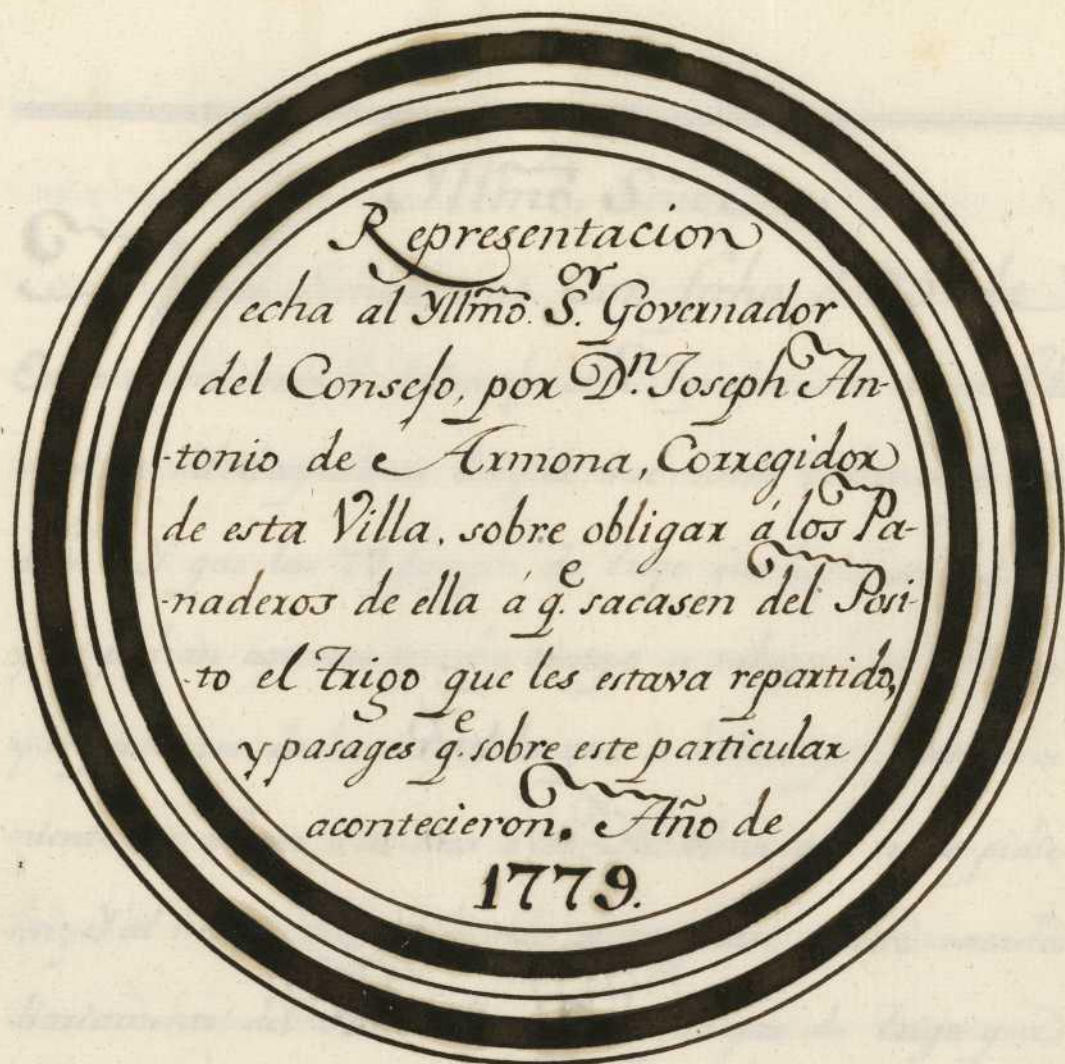 Representacion
echa al Yllm̃o. S.ᵒʳ Governador
del Consejo, por D.ⁿ Joseph An-
-tonio de Armona, Corregidor
de esta Villa, sobre obligar á los Pa-
-naderos de ella á q.ᵉ sacasen del Posi-
-to el Trigo que les estava repartido,
y pasages q.ᵉ sobre este particular
acontecieron. Año de
1779.